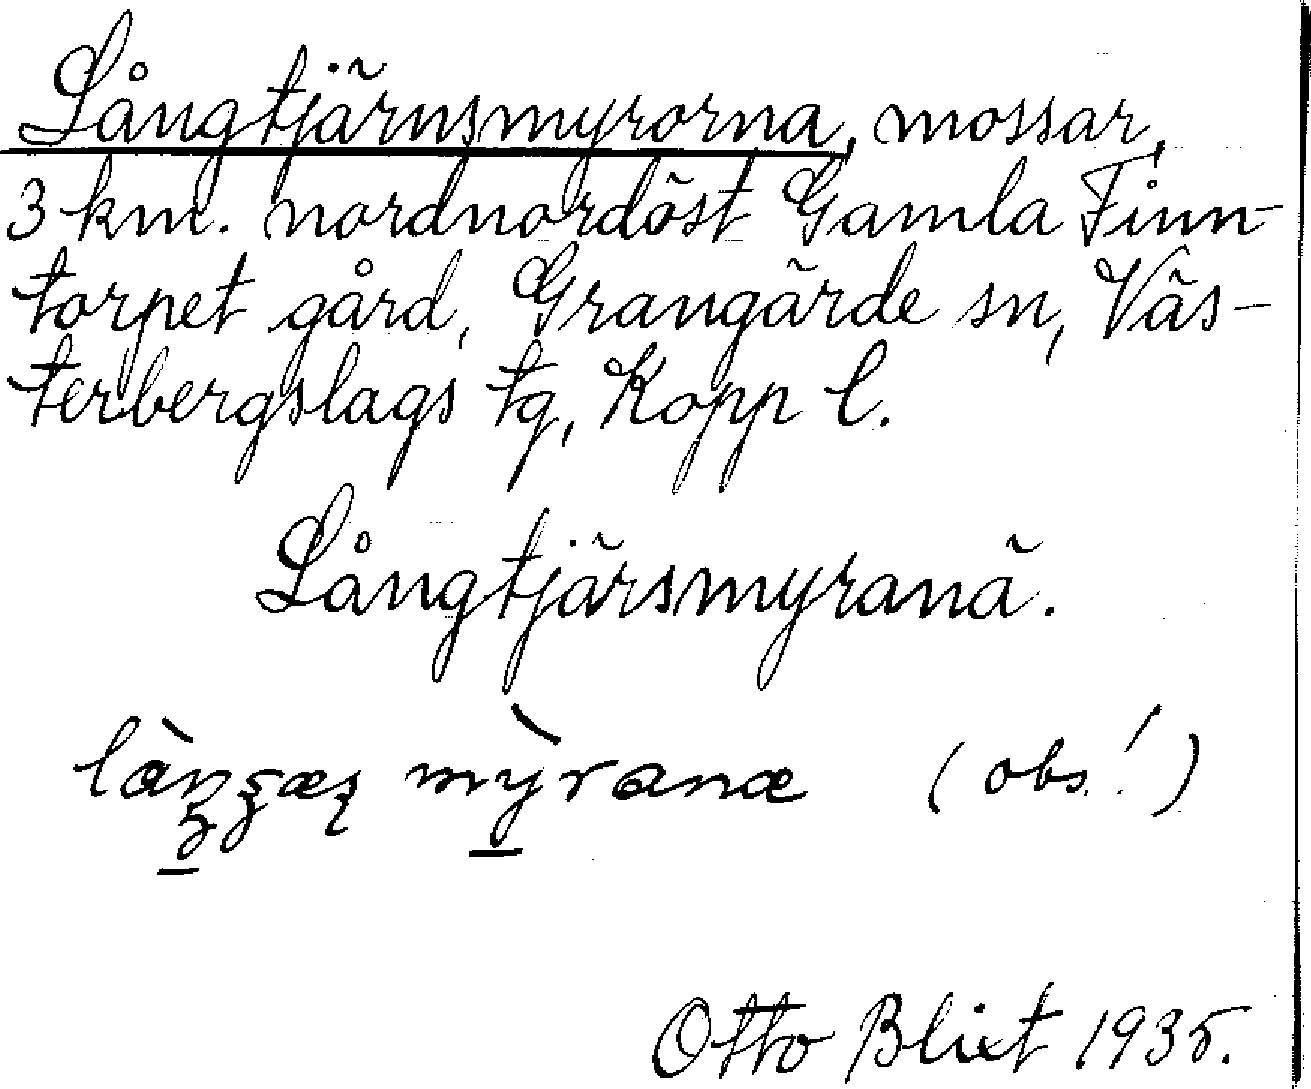 Långtjärnsmyrorna, mossar,
3 km. nordnordöst Gamla Finn-
torpet gård, Grangärde sn, Väs-
terbergslags tg, Kopp l.
Långtjärsmyranä.
myranæ (obs!)
Otto Blixt 1935.